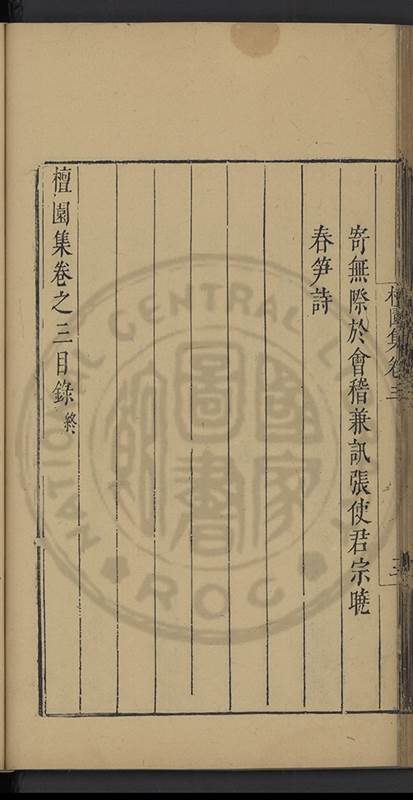 檀園集卷三
三
寄無際於會稽兼訊張使君宗曉
春笋詩
檀園集卷之三目錄終
國家圖書館
NATIONAL CENTRAL L
ROC